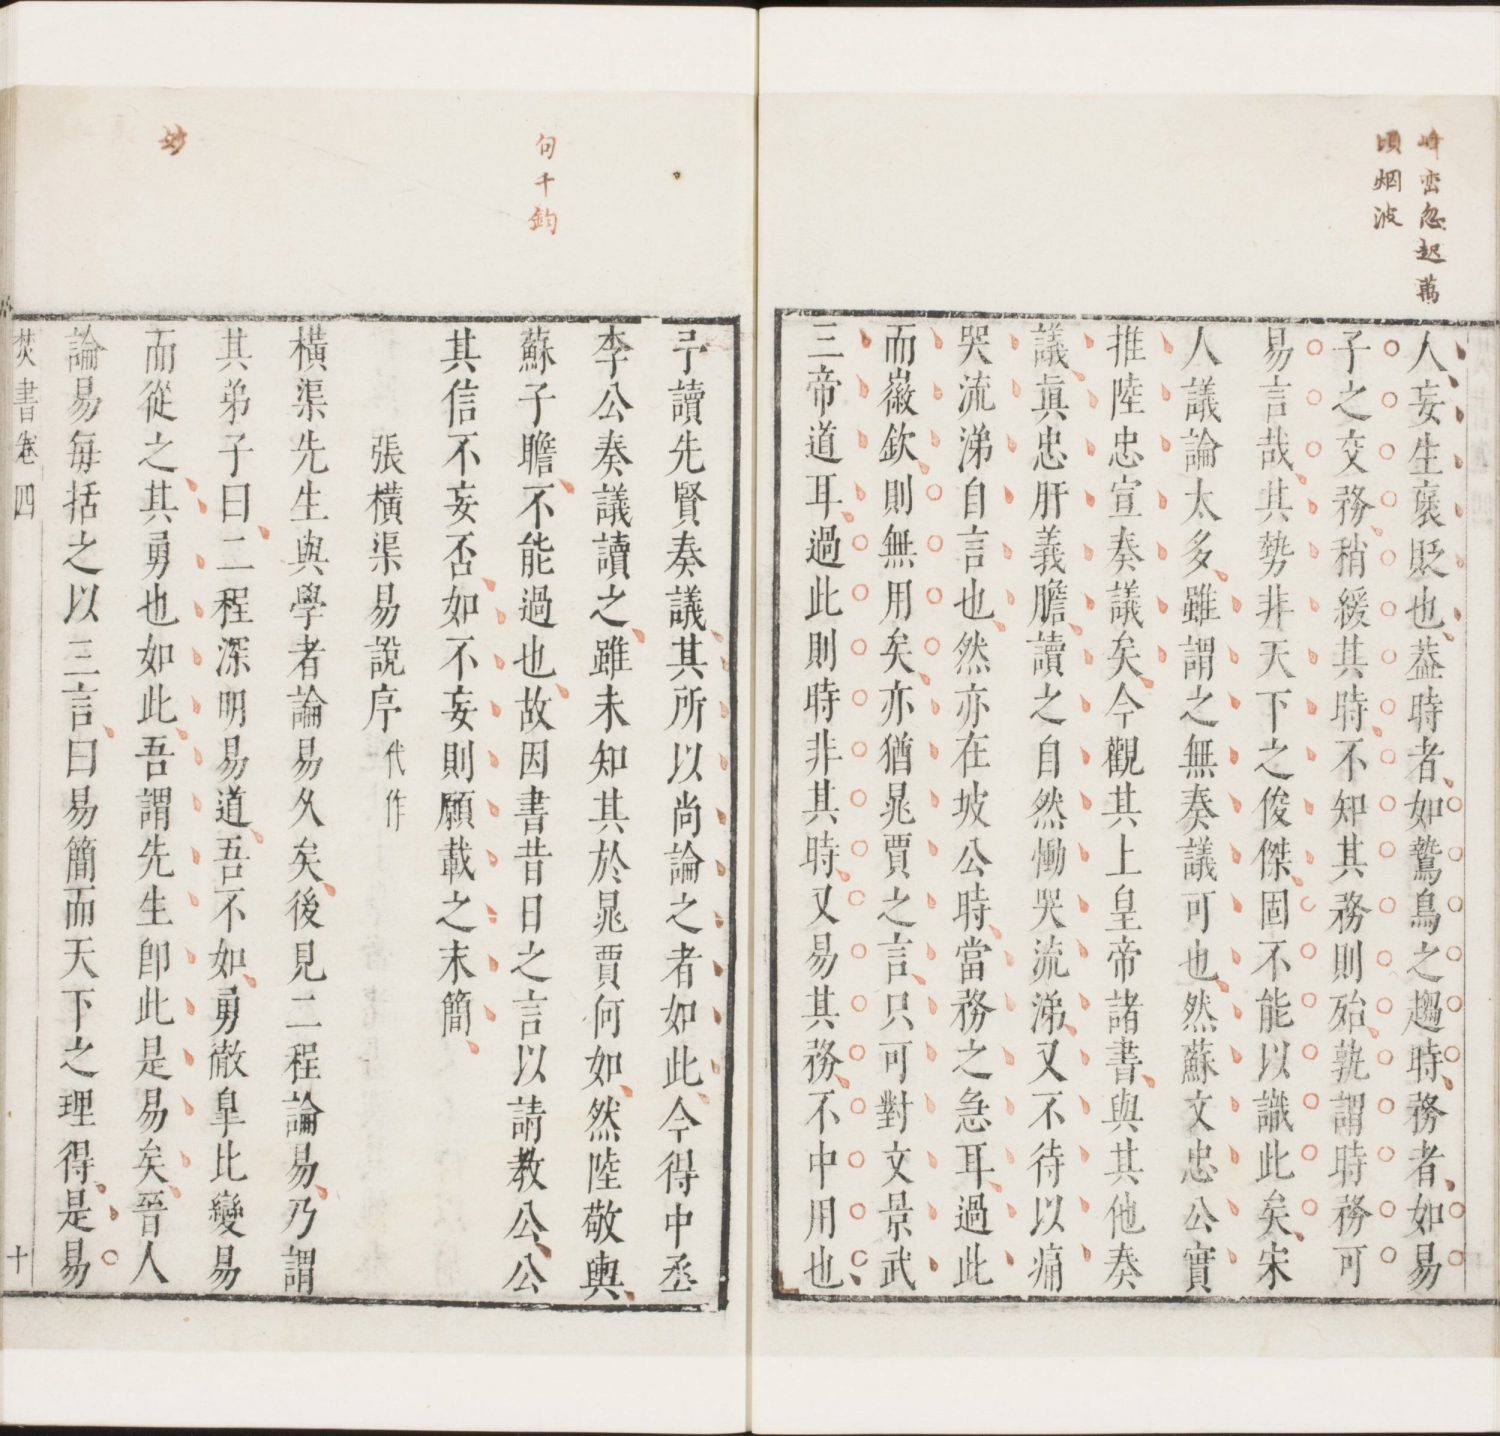 峰巒忽起萬
頃烟波
人妄生褒貶也葢時者如鷙鳥之趨時務者如易
子之交務稍緩其時不知其務則殆孰謂時務可
易言哉其勢非天下之俊傑固不能以識此矣宋
人議論太多雖謂之無奏議可也然蘇文忠公實
推陸忠宣奏議矣今觀其上皇帝諸書與其他奏
議真忠肝義膽讀之自然慟哭流涕又不待以痛
哭流涕自言也然亦在坡公時當務之急耳過此
而徽欽則無用矣亦猶晁賈之言只可對文景武
三帝道耳過此則時非其時又易其務不中用也
句千鈞
妙
予讀先賢奏議其所以尚論之者如此今得中丞
李公奏議讀之雖未知其於晁賈何如然陸敬輿
蘇子瞻不能過也故因書昔日之言以請教公公
其信不妄否如不妄則願載之末簡
張橫渠易說序代作
橫渠先生與學者論易久矣後見二程論易乃謂
其弟子曰二程深明易道吾不如勇徹臯比變易
而從之其勇也如此吾謂先生卽此是易矣晉人
論易每括之以三言曰易簡而天下之理得是易
焚書卷四
十